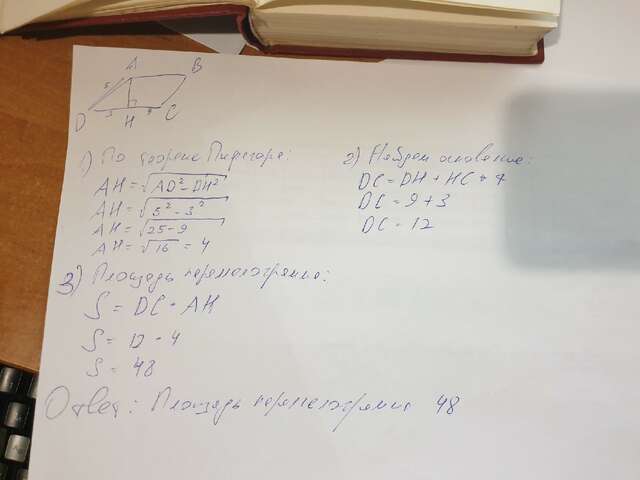 A B
5
D 3 H 9 C
1) По теореме Пифагора:
AH = √AD² - DH²
AH = √5² - 3²
AH = √25 - 9
AH = √16 = 4
2) Найдем основание:
DC = DH + HC
DC = 9 + 3
DC = 12
3) Площадь параллелограмма:
S = DC · AH
S = 12 · 4
S = 48
Ответ: Площадь параллелограмма 48